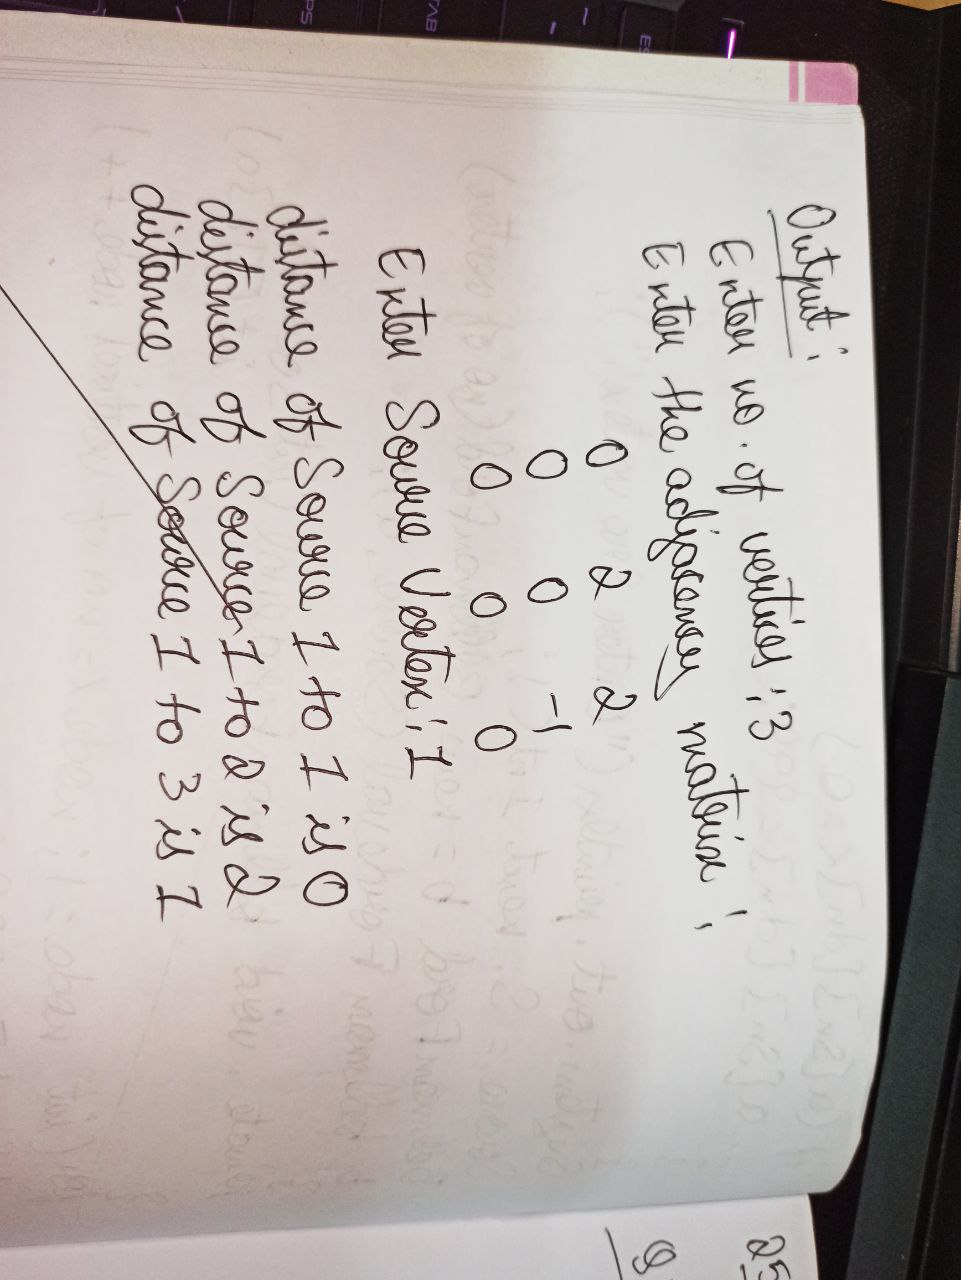 Output:
Enter no. of vertices : 3
Enter the adjacency matrix :
0 2 2
0 0 -1
0 0 0
Enter Source Vertex : 1
distance of Source 1 to 1 is 0
distance of Source 1 to 2 is 2
distance of Source 1 to 3 is 1
25